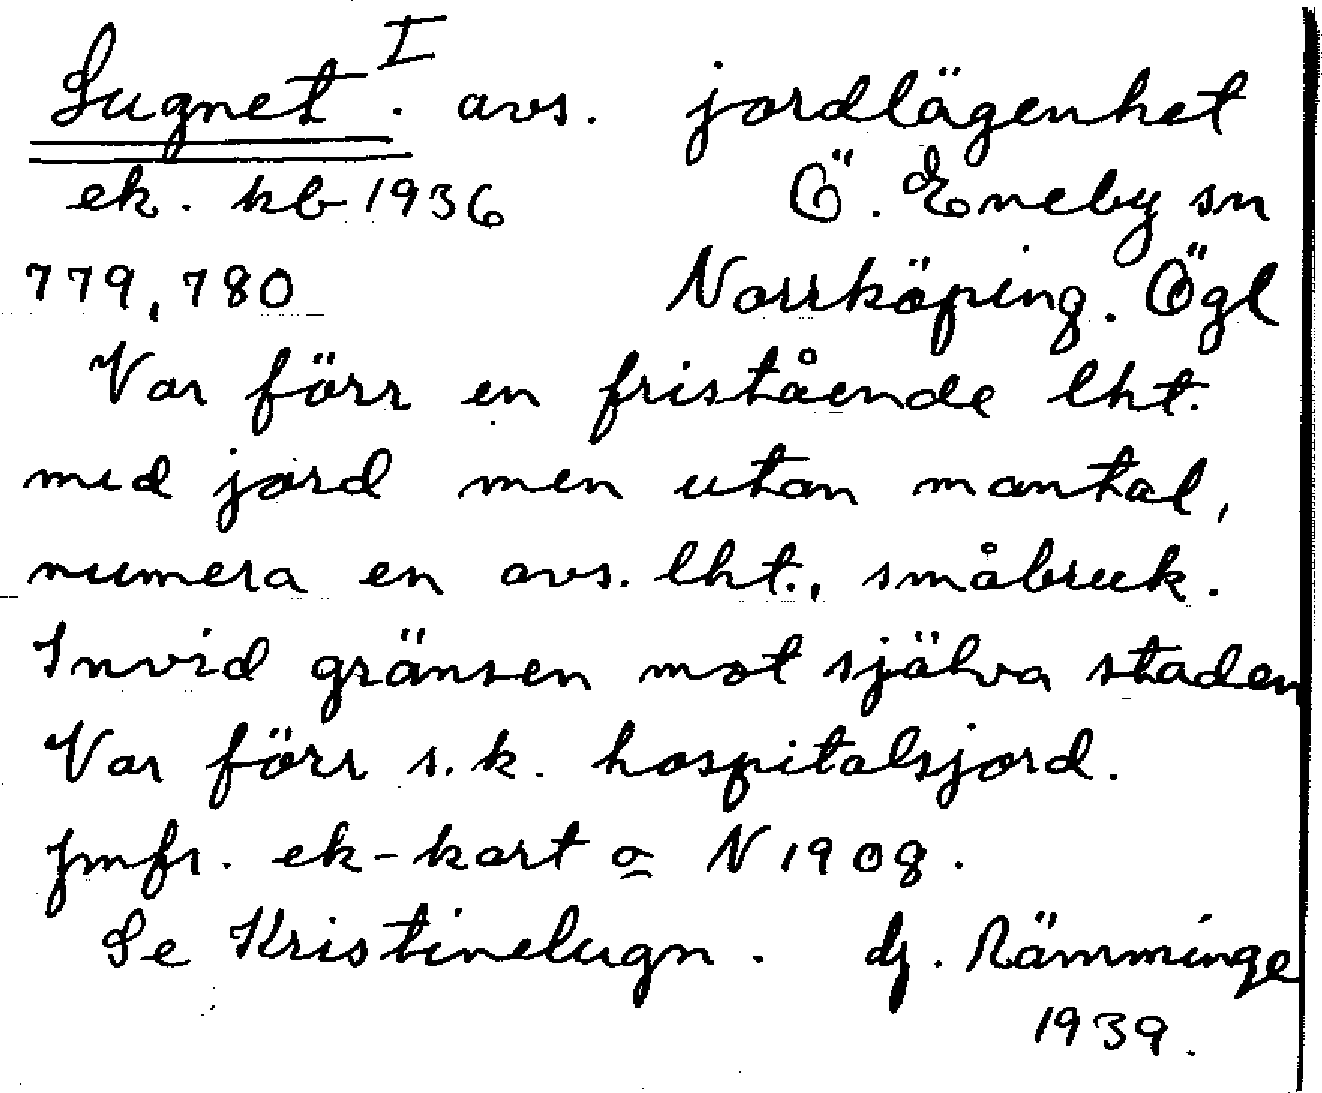 Lugnet I. avs. jordlägenhet
ek. kb 1936 Ö. Eneby sn
779, 780 Norrköping. Ögl
Var förr en fristående lht.
med jord men utan mantal,
numera en avs. lht., småbruk.
Invid gränsen mot själva staden
Var förr s.k. hospitalsjord.
Jmfr. ek-kart o N 1908.
Se Kristinelugn. dj. Rämminge
1939.